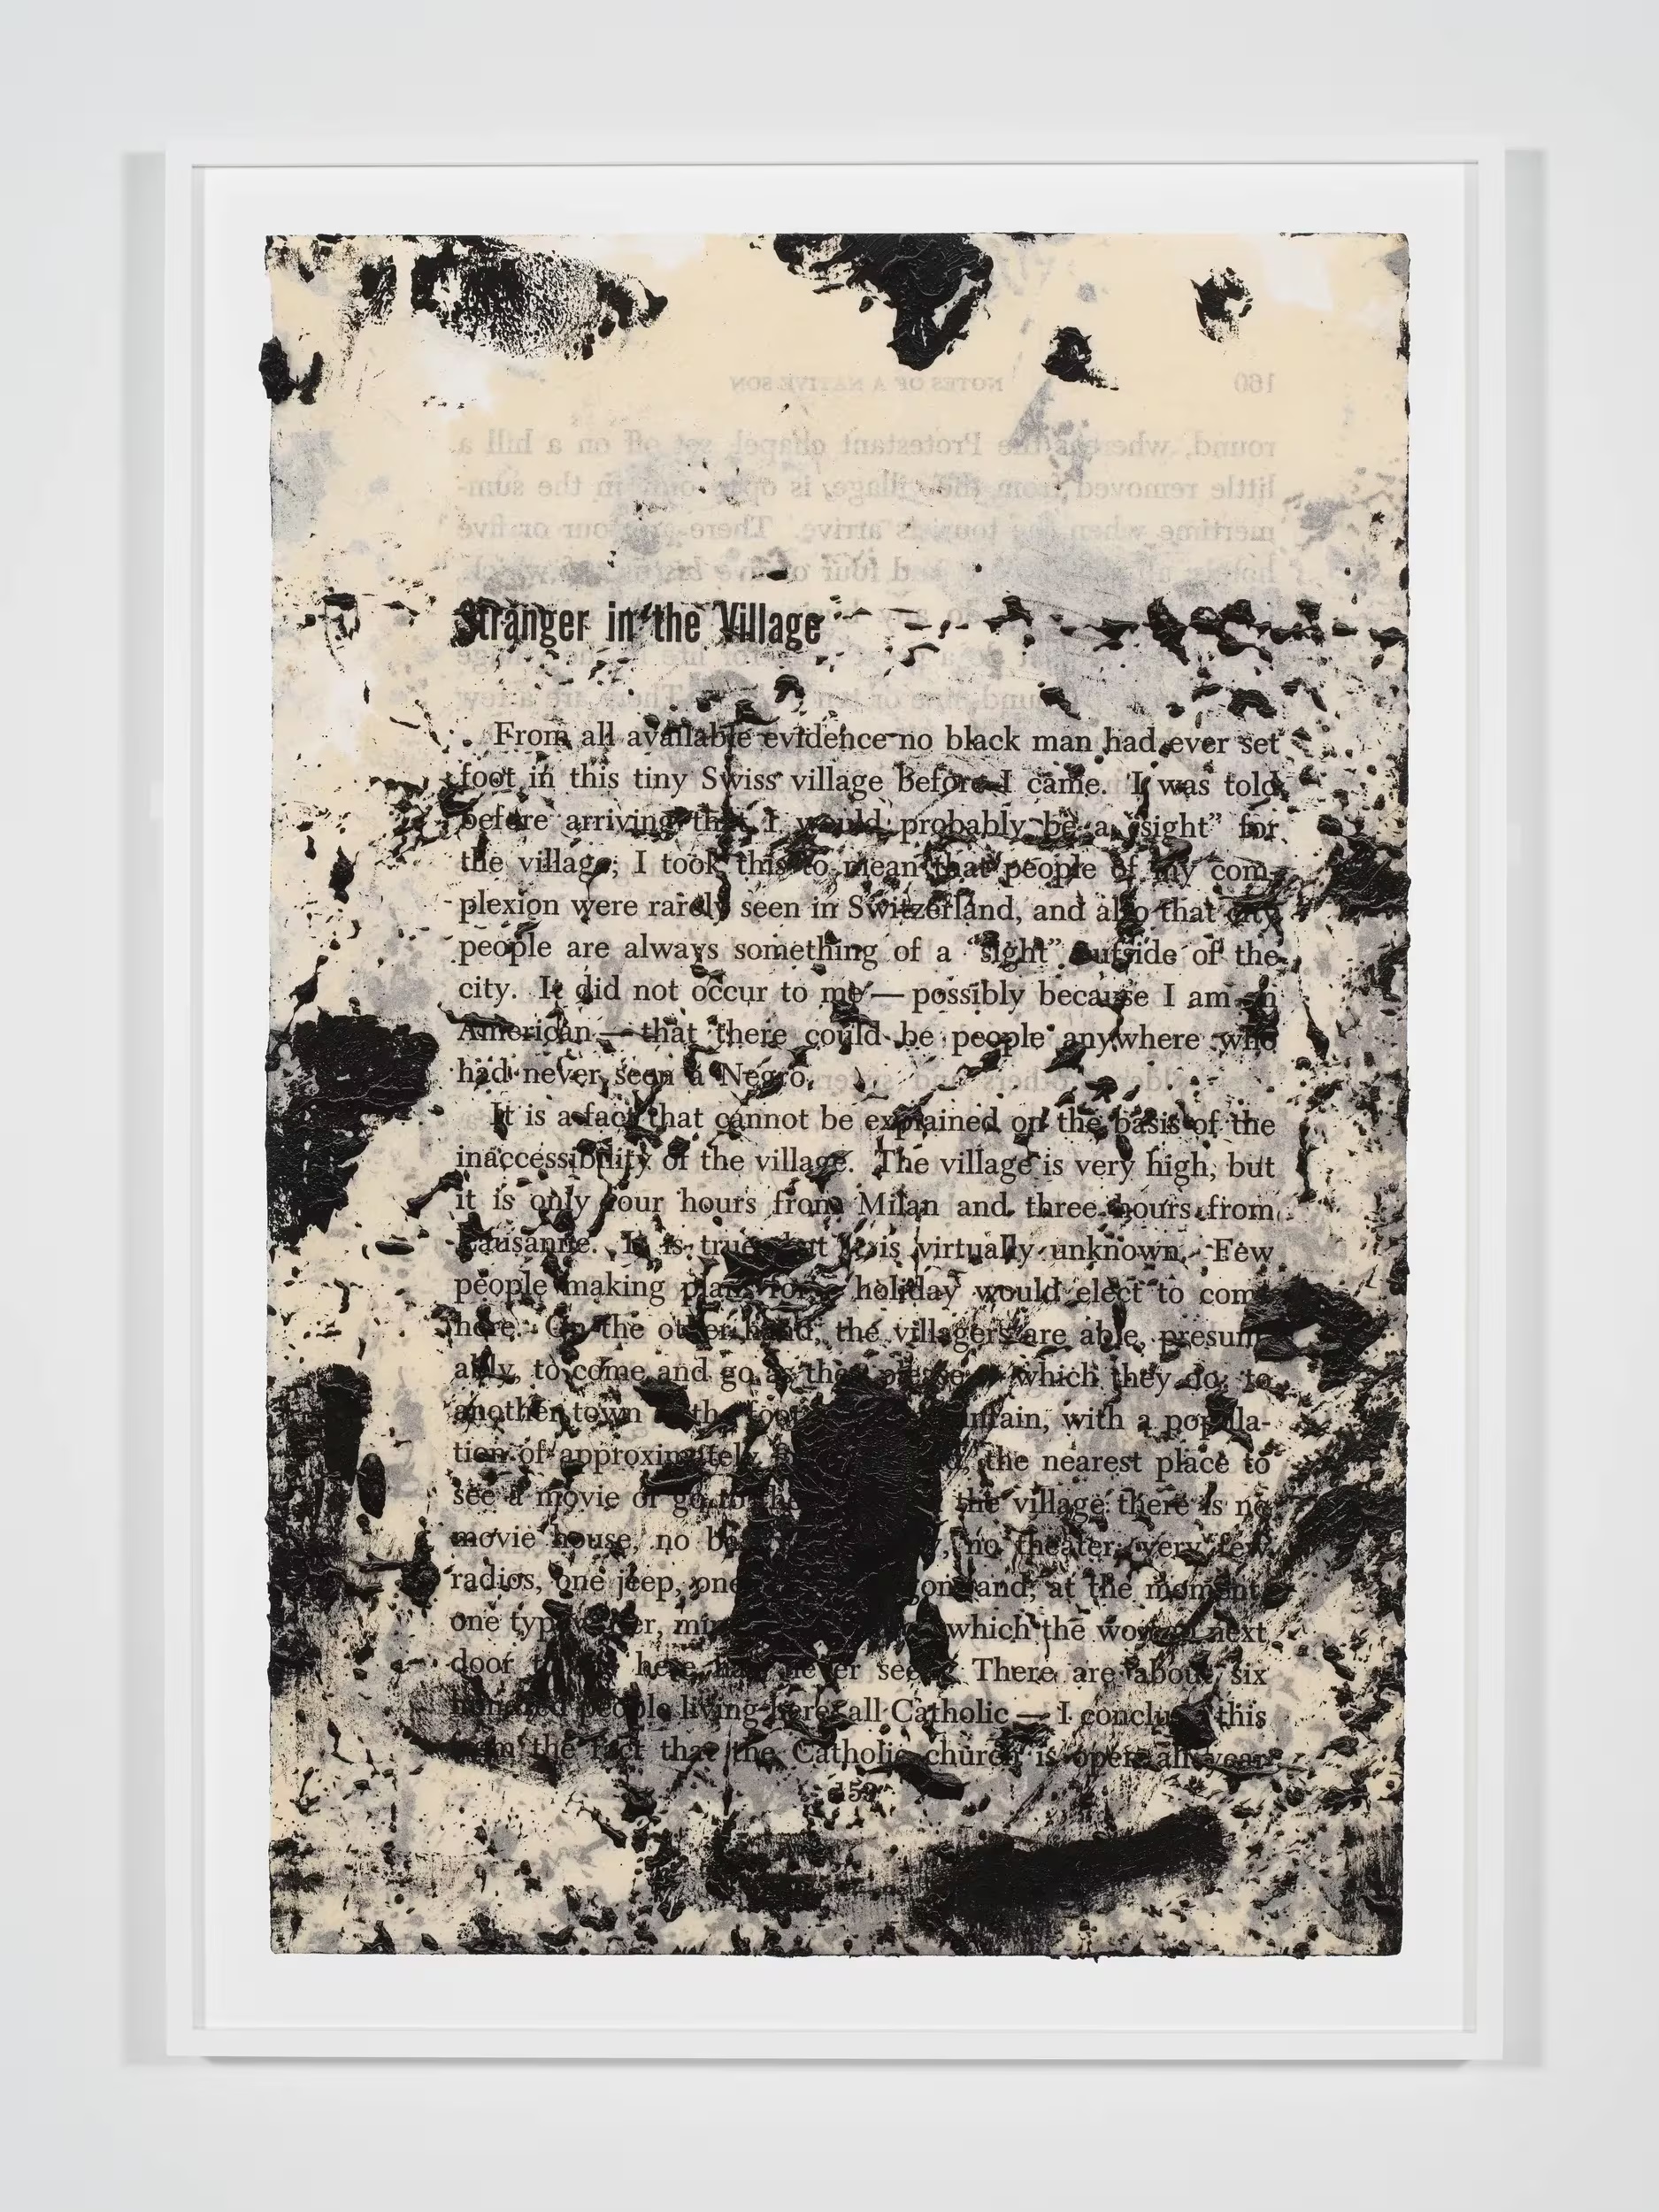 160 NOTES OF A NATIVE SON
round, whereas the Protestant chapel, set off on a hill a
little removed from the village, is open only in the sum-
mertime when the tourists arrive. There are four or five
Stranger in the Village
From all available evidence no black man had ever set
foot in this tiny Swiss village before I came. I was told
before arriving that I would probably be a “sight” for
the village; I took this to mean that people of my com-
plexion were rarely seen in Switzerland, and also that city
people are always something of a “sight” outside of the
city. It did not occur to me — possibly because I am an
American — that there could be people anywhere who
had never seen a Negro.
It is a fact that cannot be explained on the basis of the
inaccessibility of the village. The village is very high, but
it is only four hours from Milan and three hours from
Lausanne. It is true that it is virtually unknown. Few
people making plans for a holiday would elect to come
here. On the other hand, the villagers are able, presum-
ably, to come and go as they please — which they do: to
another town at the foot mountain, with a popula-
tion of approximately the nearest place to
see a movie or go to the the village there is no
movie house, no no theater; very few
radios, one jeep, one and, at the moment,
one typewriter, mine which the woman next
door to me here had never seen. There are about six
hundred people living here, all Catholic — I conclude this
from the fact that the Catholic church is open all year
159